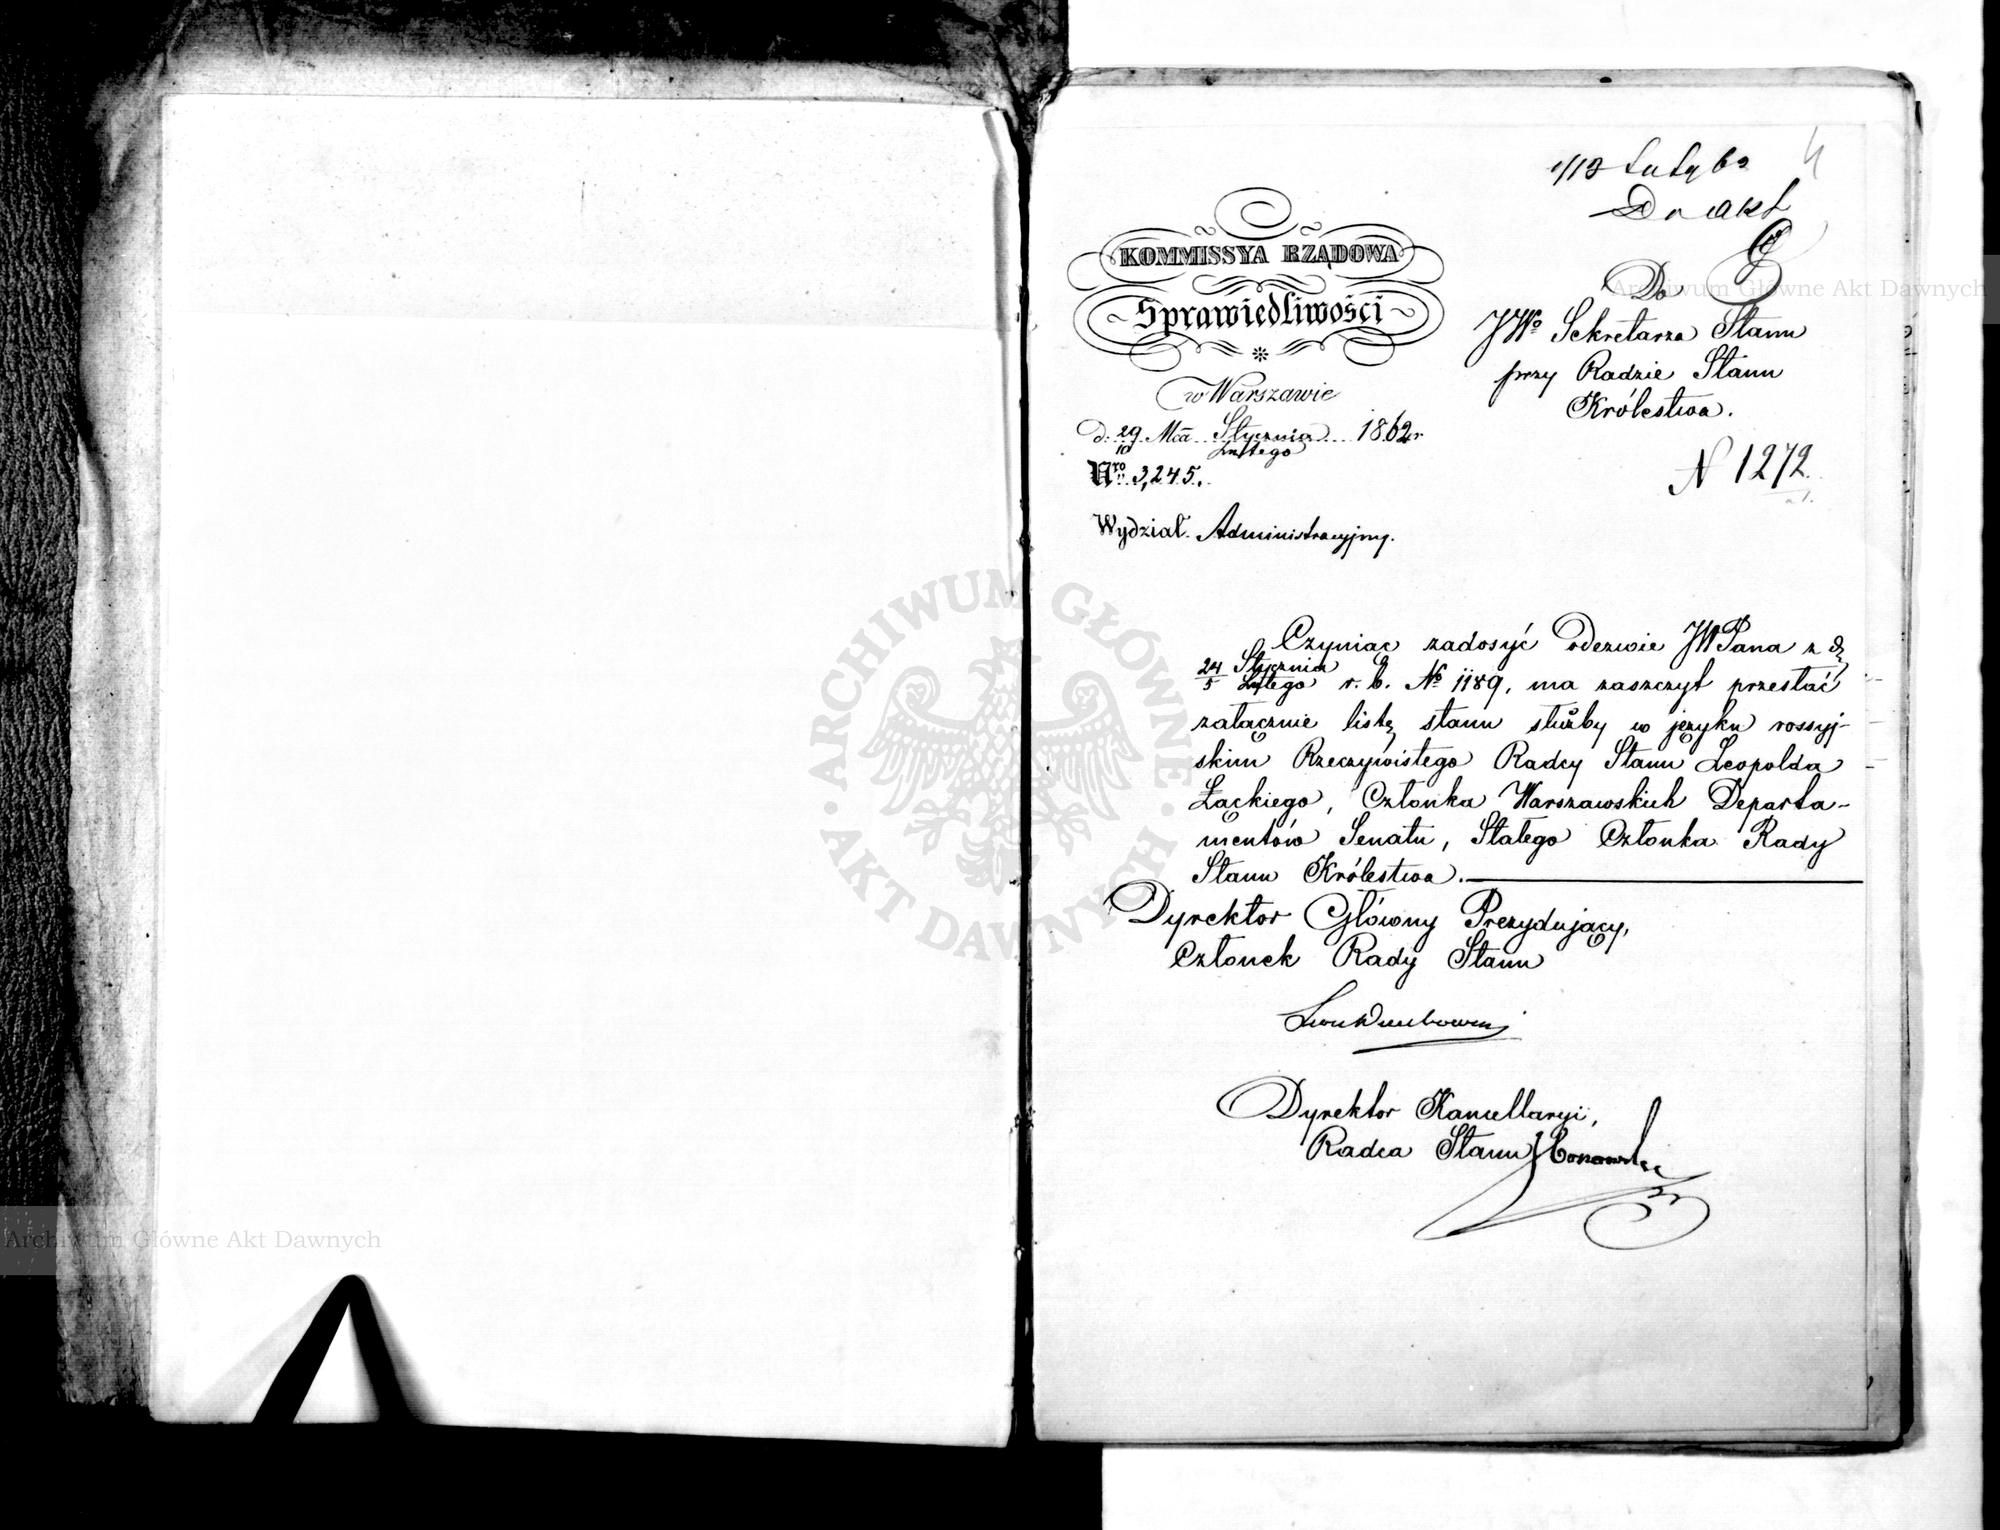 4
1/13 Lutego 62
Do akt
KOMMISSYA RZĄDOWA
Sprawiedliwości
w Warszawie
d: 29/10 Mca Stycznia/Lutego 1862 r.
Nro 3,245.
Wydział Administracyjny.
Do
JWo Sekretarza Stanu
przy Radzie Stanu
Królestwa.
N 1272
Czyniąc zadosyć Odezwie JWPana z d.
24/5 Stycznia/Lutego r. b. No 1189, ma zaszczyt przesłać
załącznie listę stanu służby w języku rossyj-
skim Rzeczywistego Radcy Stanu Leopolda
Łąckiego, Członka Warszawskich Departa-
mentów Senatu, Stałego Członka Rady
Stanu Królestwa.
Dyrektor Główny Prezydujący,
Członek Rady Stanu
Dyrektor Kancellaryi,
Radca Stanu
ARCHIWUM GŁÓWNE AKT DAWNYCH
Archiwum Główne Akt Dawnych
Archiwum Główne Akt Dawnych